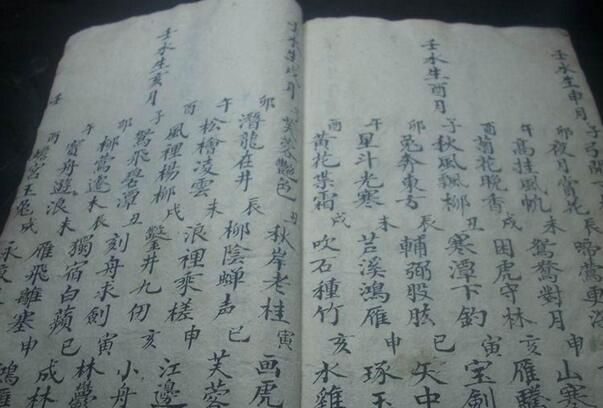 壬水生申月
子弓開下
卯夜月賞花 辰啼鶯
午高挂風帆 未鴛鴦對月 申山寒
酉菊花晚香 戌困虎守林 亥雁
壬水生酉月
子秋風飄柳 丑寒潭下釣 寅宝劍
卯兔奔東方 辰輔弼股肱 巳矢中
午星斗光寒 未苕溪鴻雁 申琢玉
酉黄花 霜 戌吹石種竹 亥水雞
壬水生戌月
子芙蓉艷色 丑秋岸老桂 寅画虎
卯潛龍在井 辰柳陰蟬声 巳芙蓉
午松檜凌雲 未浪裡乘槎 申江邊
酉風裡楊柳 戌鑿井九仞 亥小舟
壬水生亥月
子鴛飛碧潭 丑刻舟求劍 寅林
卯柳鶯遷 獨宿白蘋 巳成林
午賞舟遊浪 未雁飛離塞 申鴻雁
酉蟾宮玉兔 戌
壬